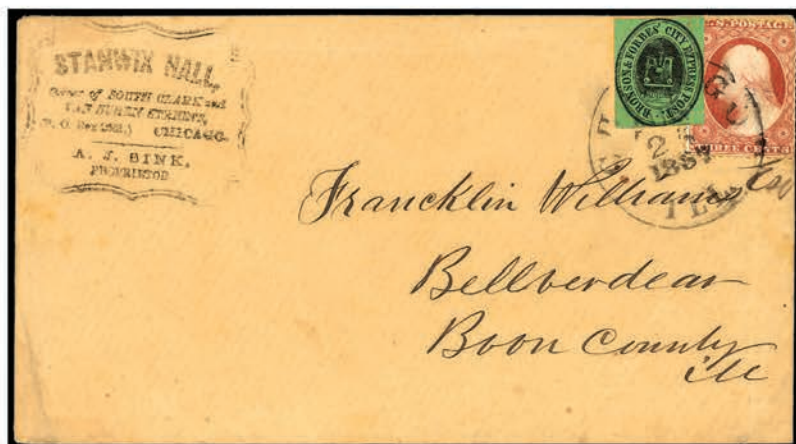 STANWIX HALL
Corner of SOUTH CLARK and
VAN BUREN STREETS,
CHICAGO.
A. J. SINK,
PROPRIETOR
BRONSON & FORBES' CITY EXPRESS POST.
U.S. POSTAGE
THREE CENTS
1857
ILL
Francklin Williams
Bellverdear
Boon County
ill